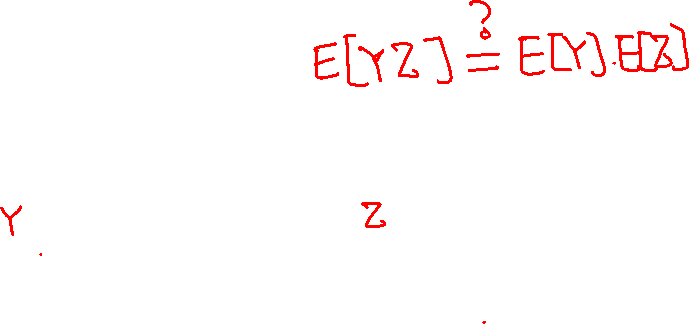 E[YZ] ?= E[Y].E[Z]
Y Z